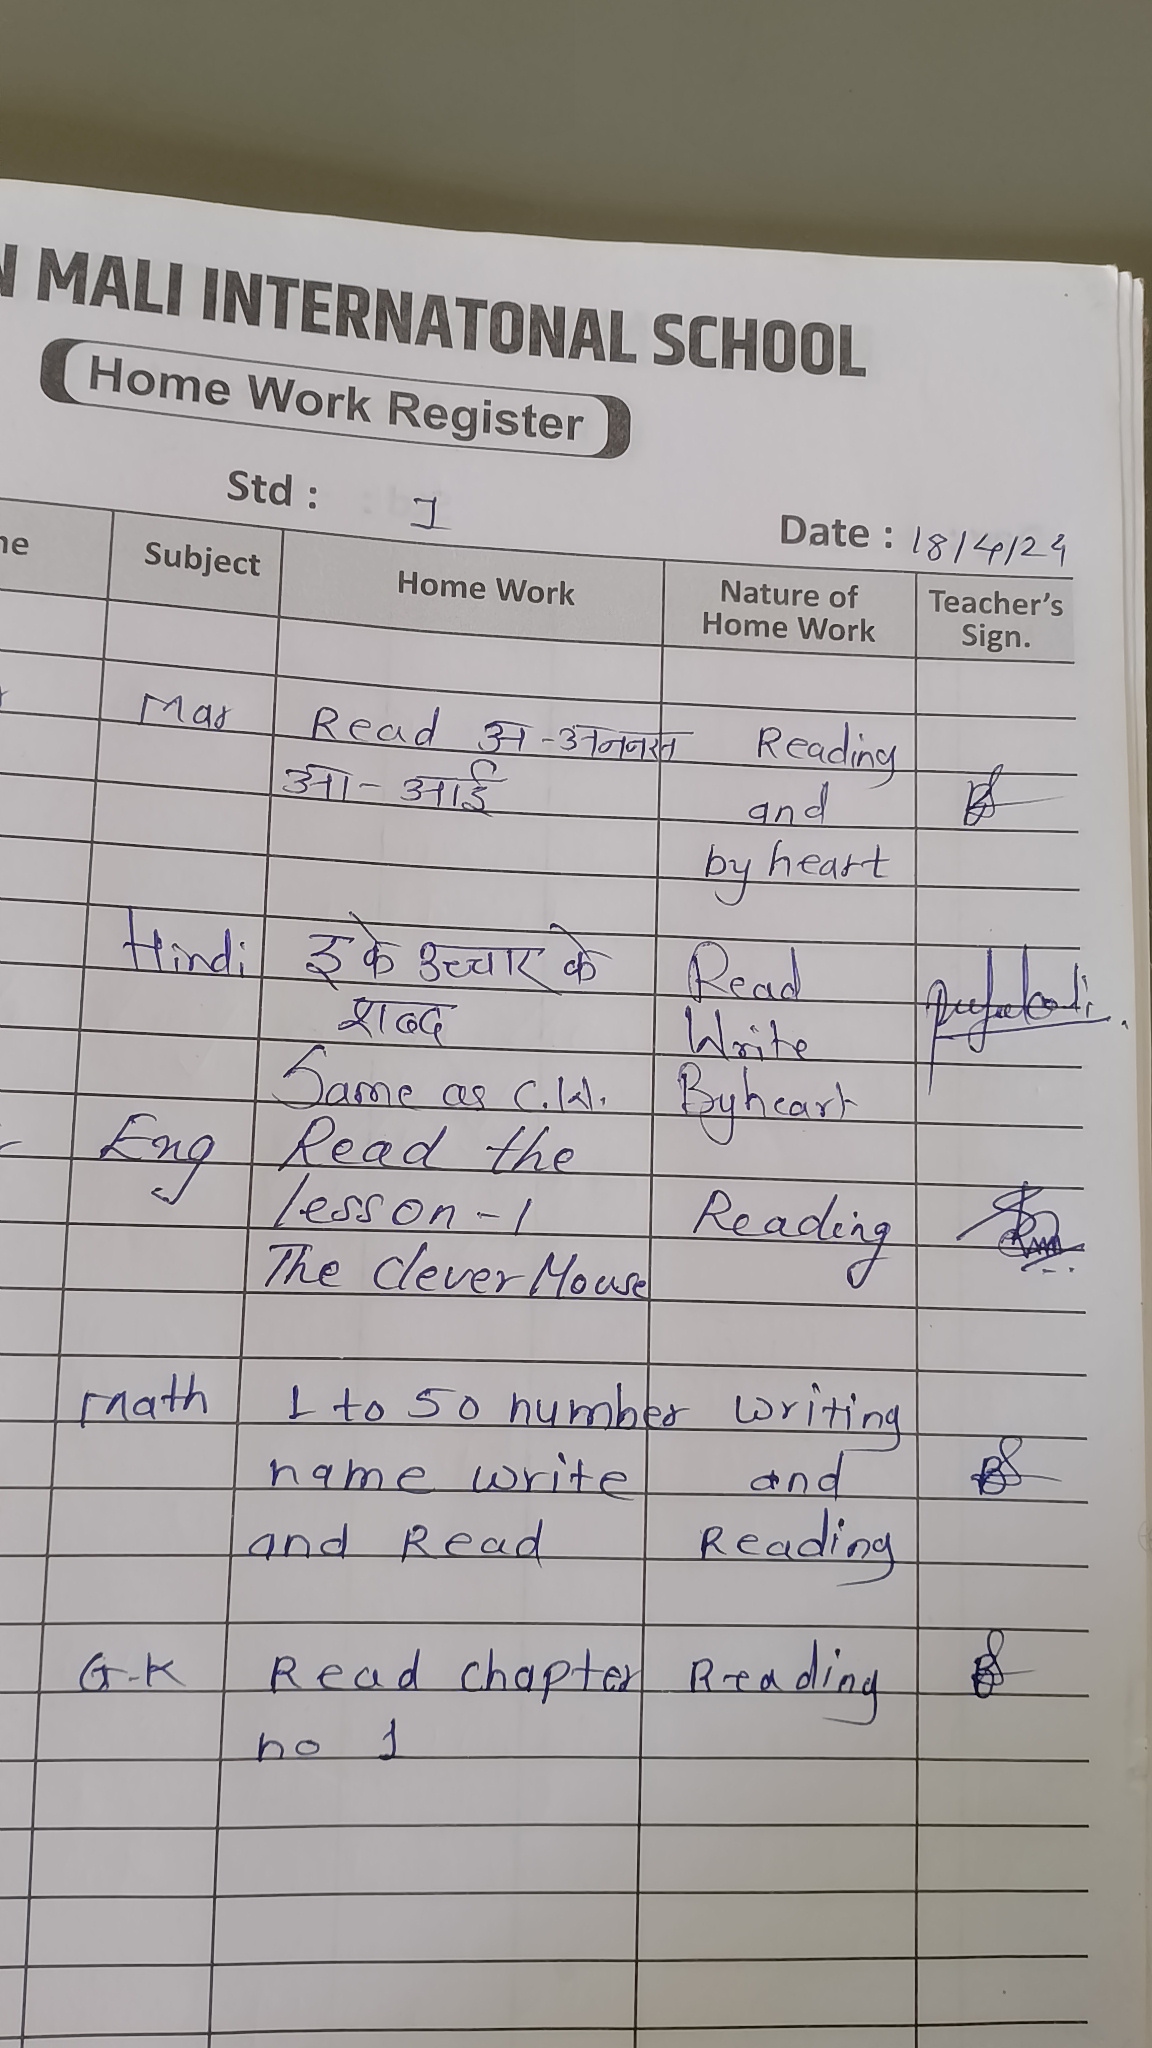 N MALI INTERNATONAL SCHOOL
Home Work Register
Std : 1
Date : 18/4/24
Subject Home Work Nature of Home Work Teacher's Sign.
Mar Read अ-अननस Reading
आ-आई and
by heart
Hindi इ के उच्चार के Read
शब्द Write
Same as C.W. Byheart
Eng Read the
lesson-1 Reading
The clever Mouse
math 1 to 50 number writing
name write and
and Read Reading
G.K Read chapter Reading
no 1